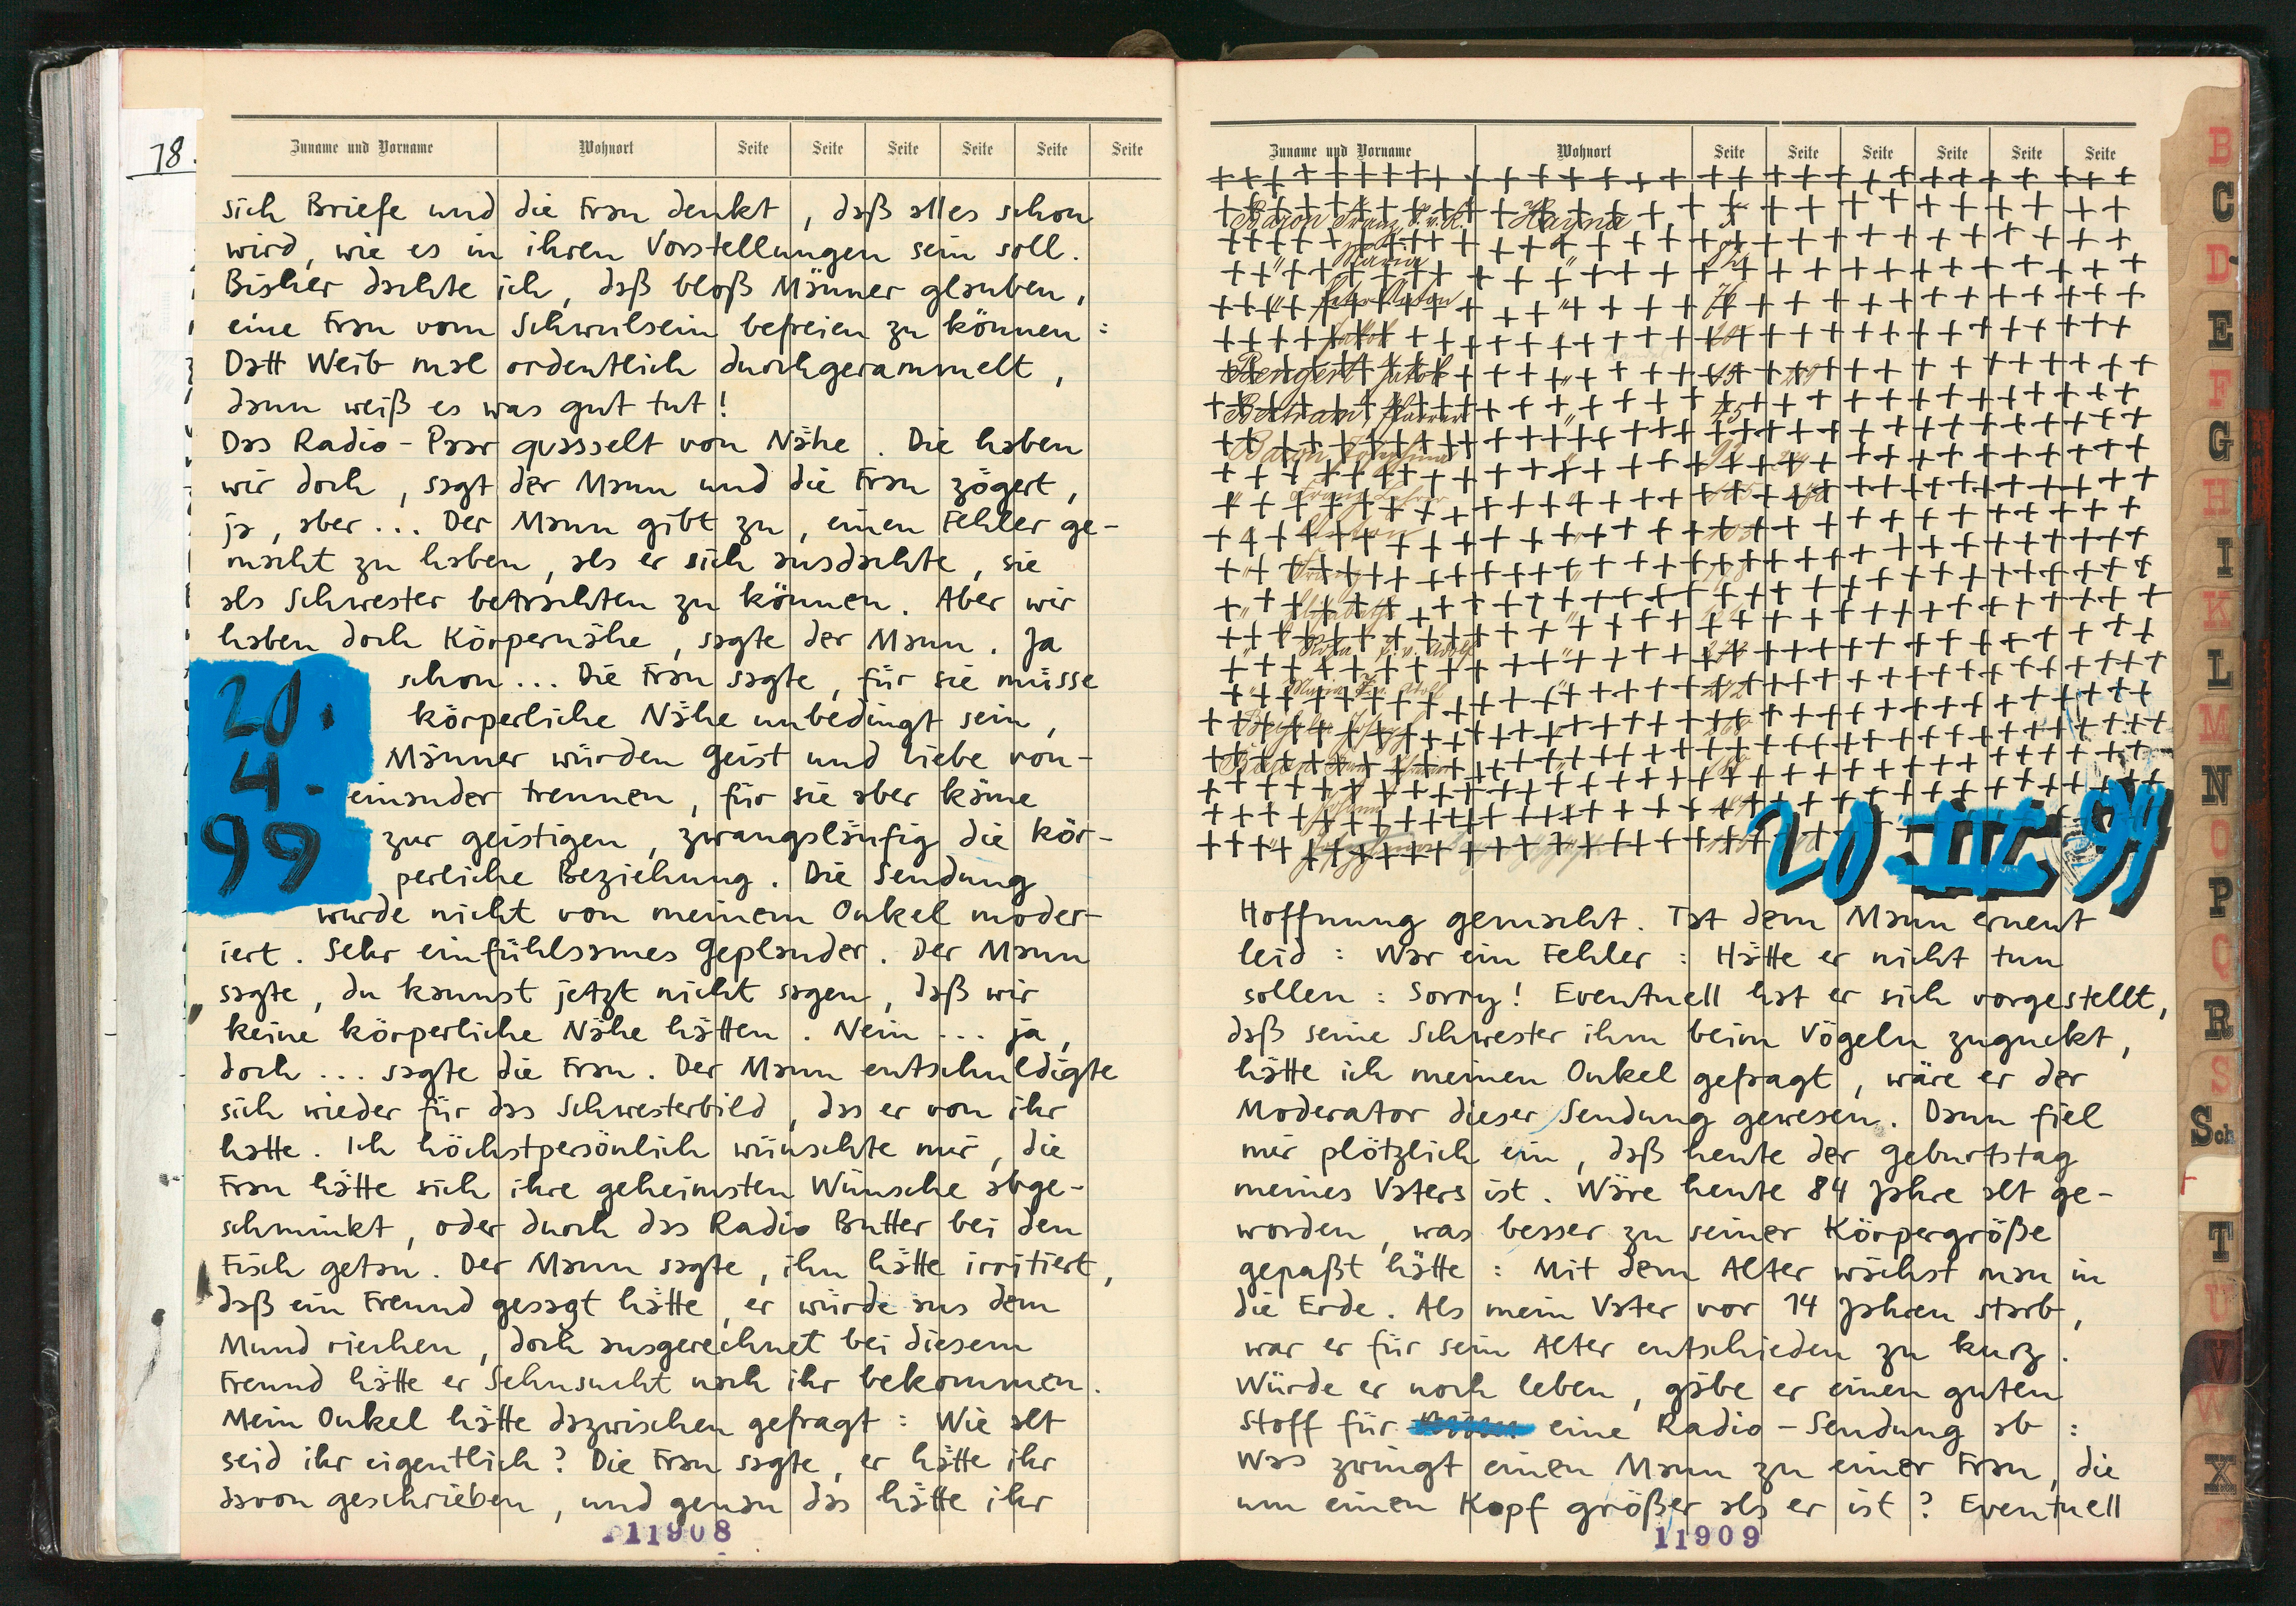 78.
Zuname und Vorname Wohnort Seite Seite Seite Seite Seite Seite
sich Briefe und die Frau denkt, daß alles schon
wird, wie es in ihren Vorstellungen sein soll.
Bisher dachte ich, daß bloß Männer glauben,
eine Frau vom Schwulsein befreien zu können:
Datt Weib mal ordentlich durchgerammelt,
dann weiß es was gut tut!
Das Radio-Paar quasselt von Nähe. Die haben
wir doch, sagt der Mann und die Frau zögert,
ja, aber... Der Mann gibt zu, einen Fehler ge-
macht zu haben, als er sich ausdachte, sie
als Schwester betrachten zu können. Aber wir
haben doch Körpernähe, sagte der Mann. Ja
schon... Die Frau sagte, für sie müsse
körperliche Nähe unbedingt sein,
Männer würden Geist und Liebe von-
einander trennen, für sie aber käme
zur geistigen, zwangsläufig die kör-
perliche Beziehung. Die Sendung
20.
4.
99
wurde nicht von meinem Onkel moder-
iert. Sehr einfühlsames Geplauder. Der Mann
sagte, du kannst jetzt nicht sagen, daß wir
keine körperliche Nähe hätten. Nein... ja,
doch... sagte die Frau. Der Mann entschuldigte
sich wieder für das Schwesterbild, das er von ihr
hatte. Ich höchstpersönlich wünschte mir, die
Frau hätte sich ihre geheimsten Wünsche abge-
schminkt, oder durch das Radio Butter bei den
Fisch getan. Der Mann sagte, ihn hätte irritiert,
daß ein Freund gesagt hätte, er würde aus dem
Mund riechen, doch ausgerechnet bei diesem
Freund hätte er Sehnsucht nach ihr bekommen.
Mein Onkel hätte dazwischen gefragt: Wie alt
seid ihr eigentlich? Die Frau sagte, er hätte ihr
davon geschrieben, und genau das hätte ihr
11908
Zuname und Vorname Wohnort Seite Seite Seite Seite Seite Seite
Baron Franz Hayna
Maria
Jakob
Bengert Jakob
Baron
20 IV 99
Hoffnung gemacht. Tat dem Mann erneut
leid: War ein Fehler: Hätte er nicht tun
sollen: Sorry! Eventuell hat er sich vorgestellt,
daß seine Schwester ihm beim Vögeln zuguckt,
hätte ich meinen Onkel gefragt, wäre er der
Moderator dieser Sendung gewesen. Dann fiel
mir plötzlich ein, daß heute der Geburtstag
meines Vaters ist. Wäre heute 84 Jahre alt ge-
worden, was besser zu seiner Körpergröße
gepaßt hätte: Mit dem Alter wächst man in
die Erde. Als mein Vater vor 14 Jahren starb,
war er für sein Alter entschieden zu kurz.
Würde er noch leben, gäbe er einen guten
Stoff für eine Radio-Sendung ab:
Was zwingt einen Mann zu einer Frau, die
um einen Kopf größer als er ist? Eventuell
11909
B
C
D
E
F
G
H
I
K
L
M
N
O
P
Q
R
S
Sch
T
U
V
W
X